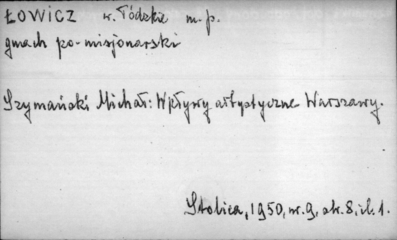 ŁOWICZ w. Łódzkie m.p.
gmach po-misjonarski
Szymański Michał: Wpływy artystyczne Warszawy.
Stolica, 1950, nr. 9, str. 8, il. 1.